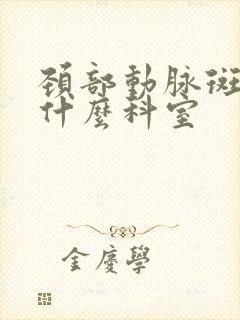 頚部動脉斑
什麼科室
金慶學